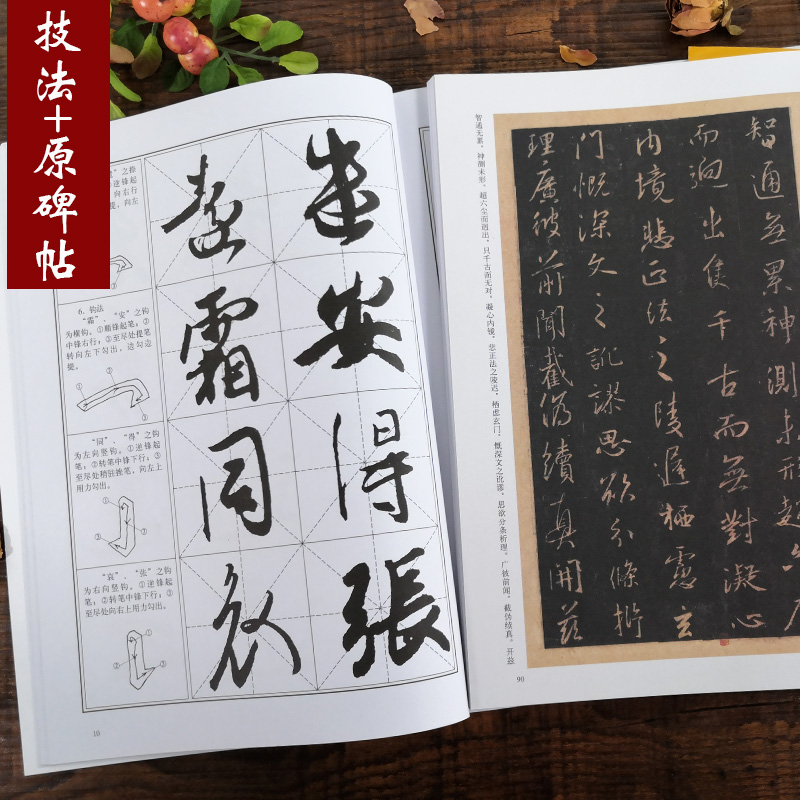 技法+原碑帖
逆锋起
向右行
提，向左
6. 钩法
“霜”、“安”之钩
为横钩。①顺锋起笔；②
中锋右行；③至尽处提笔
转向左下勾出，边勾边
提。
①
②
③
“同”、“得”之钩
为左向竖钩。①逆锋起
笔；②转笔中锋下行；③
至尽处稍驻挫笔，向左上
用力勾出。
①
②
③
“袁”、“张”之钩
为右向竖钩。①逆锋起
笔；②转笔中锋下行；③
至尽处向右上用力勾出。
①
②
③
安得張
霜同
10
智通无累，神测未形。超六尘而迥出，只千古而无对。凝心内境，悲正法之陵迟，栖虑玄门，慨深文之讹谬。思欲分条析理，广彼前闻，截伪续真，开兹
智通無累神測未形超六塵
而迥出隻千古而無對凝心
內境悲正法之陵遲栖慮玄
門慨深文之訛謬思欲分條析
理廣彼前聞截偽續真開茲
90